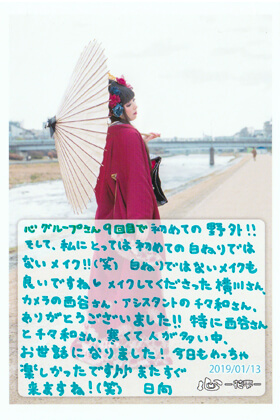 心グループさん9回目で初めての野外!!
そして、私にとっては初めての白ねりでは
ないメイク!!(笑) 白ねりではないメイクも
良いですね♥メイクしてくださった横川さん、
カメラの西谷さん・アシスタントの千々和さん、
ありがとうございました!! 特に西谷さん
と千々和さん、寒くて人が多い中、
お世話になりました! 今日もめっちゃ
楽しかったです♪♪ またすぐ
来ますね!(笑) 日向
2019/01/13
心-花雫-